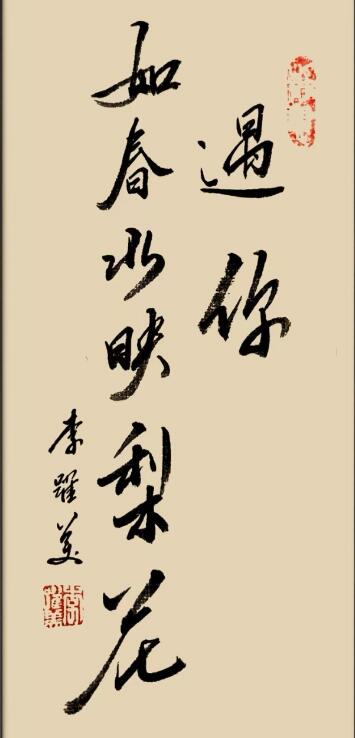 遇你
如春水映梨花
李跃美